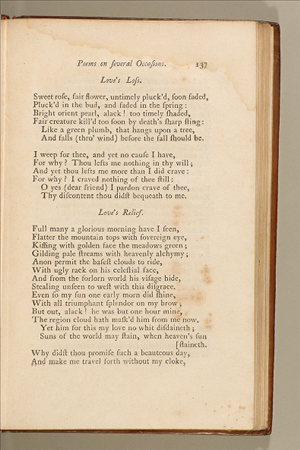 Poems on ſeveral Occaſions. 137
Love's Loſs.
Sweet roſe, fair flower, untimely pluck'd, ſoon faded,
Pluck'd in the bud, and faded in the ſpring:
Bright orient pearl, alack! too timely ſhaded,
Fair creature kill'd too ſoon by death's ſharp ſting:
Like a green plumb, that hangs upon a tree,
And falls (thro' wind) before the fall ſhould be.
I weep for thee, and yet no cauſe I have,
For why? Thou lefts me nothing in thy will;
And yet thou lefts me more than I did crave:
For why? I craved nothing of thee ſtill:
O yes (dear friend) I pardon crave of thee,
Thy diſcontent thou didſt bequeath to me.
Love's Relief.
Full many a glorious morning have I ſeen,
Flatter the mountain tops with ſovereign eye,
Kiſſing with golden face the meadows green;
Gilding pale ſtreams with heavenly alchymy;
Anon permit the baſeſt clouds to ride,
With ugly rack on his celeſtial face,
And from the forlorn world his viſage hide,
Stealing unſeen to weſt with this diſgrace.
Even ſo my ſun one early morn did ſhine,
With all triumphant ſplendor on my brow;
But out, alack! he was but one hour mine,
The region cloud hath maſk'd him from me now.
Yet him for this my love no whit diſdaineth;
Suns of the world may ſtain, when heaven's ſun
[ſtaineth.
Why didſt thou promiſe ſuch a beauteous day,
And make me travel forth without my cloke,